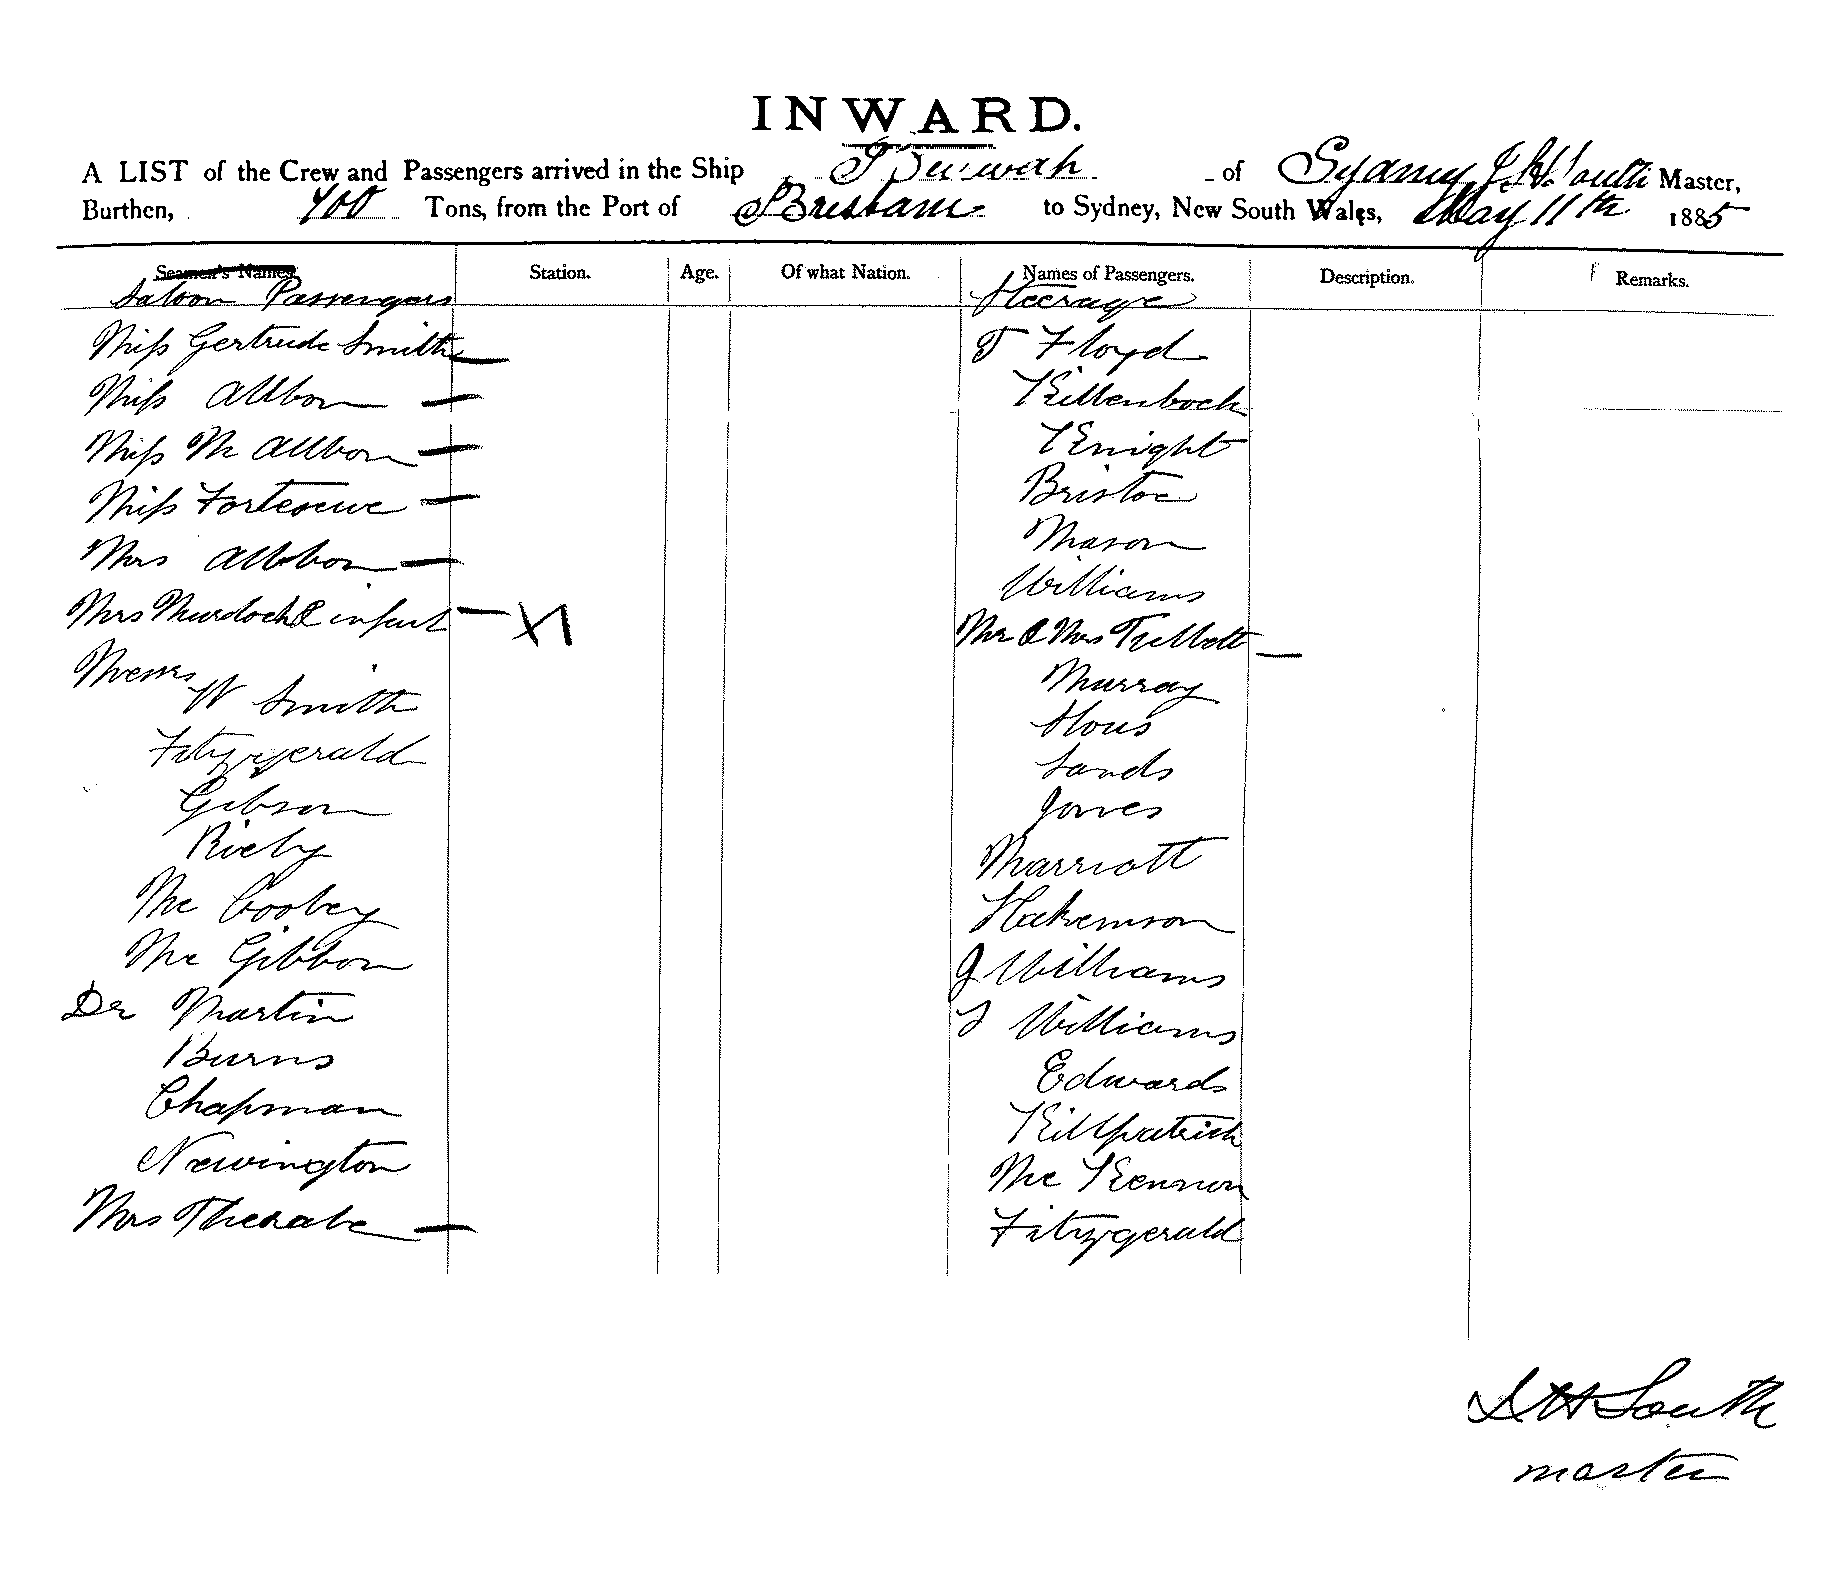 INWARD.
A LIST of the Crew and Passengers arrived in the Ship of Sydney J. H. South Master,
Burthen, 400 Tons, from the Port of Brisbane to Sydney, New South Wales, May 11th 1885
Seamen's Names. Station. Age. Of what Nation. Names of Passengers. Description. Remarks.
Saloon Passengers
Miss Gertrude Smith
Miss Allbon
Miss M Allbon
Miss Fortescue
Mrs Allbon
Mrs Murdoch & infant
Messrs
W Smith
Fitzgerald
Gibson
Rieby
Mc Coobey
Mc Gibbon
Dr Martin
Burns
Chapman
Newington
Mrs
Steerage
T Floyd
Killenbeck
Knight
Bristoe
Mason
Williams
Mr & Mrs
Murray
Hous
Sands
Jones
Marriott
J Williams
Williams
Edwards
Killpatrick
Mc Kennon
Fitzgerald
South
master